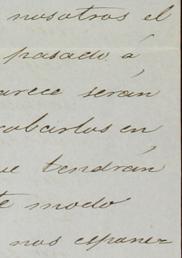 nosotros el
pasado á
arece serán
robarlos en
ue tendrán
te modo
nos esponer